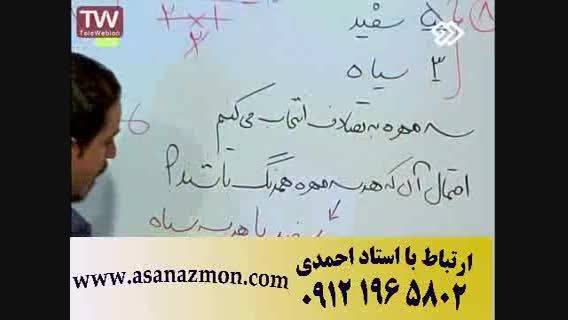 TW
TeleWebion
۵ سفید
۸
۲ × ۱
۳
۳ سیاه
سه مهره به تصادف انتخاب می‌کنیم
احتمال آن که هر سه مهره همرنگ باشند؟
سفید یا هر سه سیاه
ارتباط با استاد احمدی
www.asanazmon.com
۰۹۱۲ ۱۹۶ ۵۸۰۲